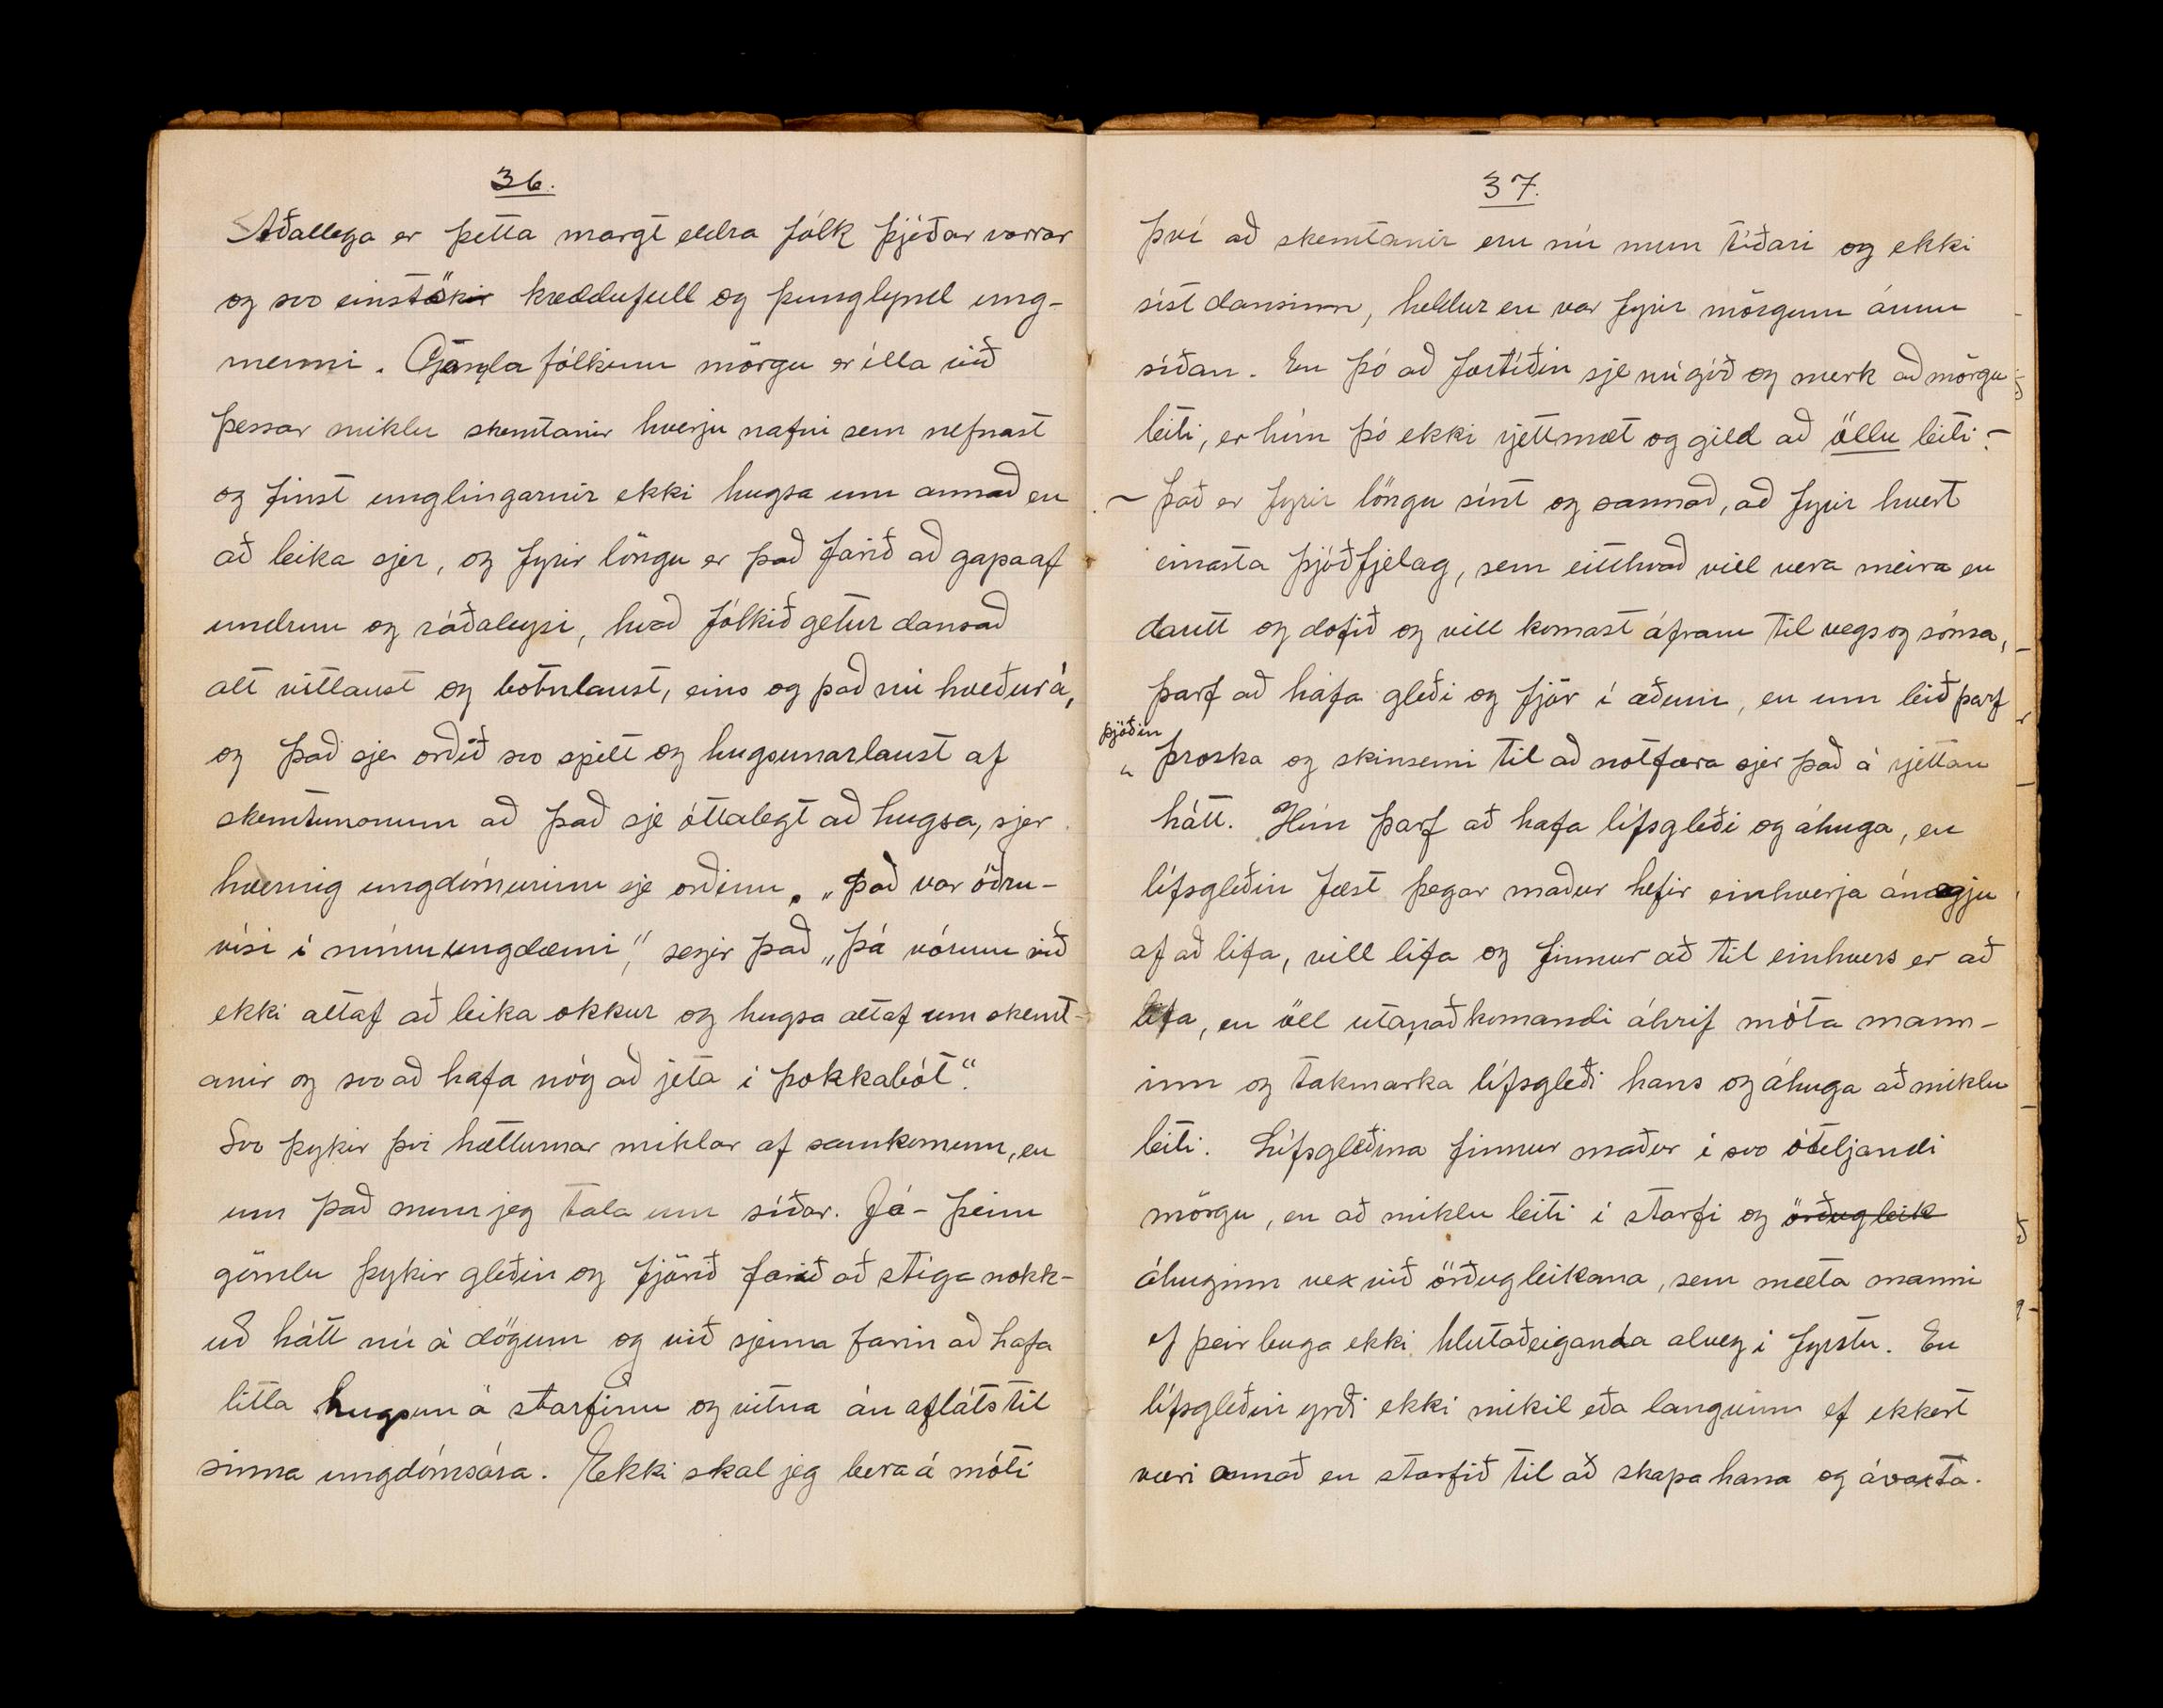 36.
Aðallega er þetta margt eldra fólk þjóðar vorrar
og svo einstökir kreddufull og þunglynd ung-
menni. Gamla fólkinu mörgu er illa við
þessar miklu skemtanir hverju nafni sem nefnast
og finst unglingarnir ekki hugsa um annað en
að leika sjer, og fyrir löngu er það farið að gapa af
undrun og ráðaleysi, hvað fólkið getur dansað
alt vitlaust og botnlaust, eins og það nú kveður á,
og það sje orðið svo spilt og hugsunarlaust af
skemtunonum að það sje óttalegt að hugsa, sjer
hvernig ungdómurinn sje orðinn. „Það var öðru-
vísi í mínu ungdæmi," segir það „þá vórum við
ekki altaf að leika okkur og hugsa altaf um skemt-
anir og svo að hafa nóg að jeta í þokkabót".
Svo þykir því hætturnar miklar af samkomum, en
um það mun jeg tala um síðar. Já - þeim
gömlu þykir gleðin og fjörið farið að stíga nokk-
uð hátt nú á dögum og við sjeum farin að hafa
litla hugsun á starfinu og vitna án afláts til
sinna ungdómsára. Ekki skal jeg bera á móti
37.
því að skemtanir eru nú mun tíðari og ekki
síst dansinn, heldur en var fyrir mörgum árum
síðan. En þó að fortíðin sje nú góð og merk að mörgu
leiti, er hún þó ekki rjettmæt og gild að öllu leiti. -
- Það er fyrir löngu sínt og sannað, að fyrir hvert
einasta þjóðfjelag, sem eitthvað vill vera meira en
dautt og dofið og vill komast áfram til vegs og sóma,
þarf að hafa gleði og fjör í æðum, en um leið þarf
þjóðin
þroska og skinsemi til að notfæra sjer það á rjettan
hátt. Hún þarf að hafa lífsgleði og áhuga, en
lífsgleðin fæst þegar maður hefir einhverja ánægju
af að lifa, vill lifa og finnur að til einhvers er að
lifa, en öll utanaðkomandi áhrif móta mann-
inn og takmarka lífsgleði hans og áhuga að miklu
leiti. Lífsgleðina finnur maður í svo óteljandi
mörgu, en að miklu leiti í starfi og örðugleik
áhuginn vex við örðugleikana, sem mæta manni
ef þeir buga ekki hlutaðeiganda alveg í fyrstu. En
lífsgleðin yrði ekki mikil eða langvinn ef ekkert
væri annað en starfið til að skapa hana og ávaxta.